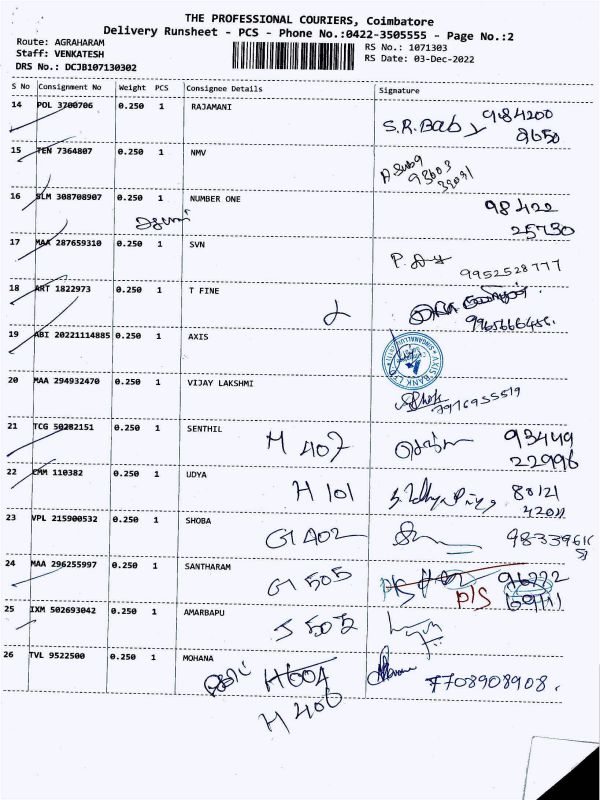 THE PROFESSIONAL COURIERS, Coimbatore
Delivery Runsheet - PCS - Phone No.:0422-3505555 - Page No.:2
Route: AGRAHARAM
Staff: VENKATESH
DRS No.: DCJB107130302
RS No.: 1071303
RS Date: 03-Dec-2022
S No Consignment No Weight PCS Consignee Details Signature
14 POL 3700706 0.250 1 RAJAMANI S.R. Babu 984200
8650
15 TEN 7364807 0.250 1 NMV
93603
16 SLM 308708907 0.250 1 NUMBER ONE 98422
25730
17 MAA 287659310 0.250 1 SVN P.
9952528777
18 ART 1822973 0.250 1 T FINE
19 ABI 20221114885 0.250 1 AXIS AXIS BANK LTD
20 MAA 294932470 0.250 1 VIJAY LAKSHMI
21 TCG 50282151 0.250 1 SENTHIL H 407 93449
22996
22 EMM 110382 0.250 1 UDYA H 101 80121
42011
23 VPL 215900532 0.250 1 SHOBA G1 A02
24 MAA 296255997 0.250 1 SANTHARAM G1 505 P/S
25 IXM 502693042 0.250 1 AMARBAPU J 502
26 TVL 9522500 0.250 1 MOHANA H 604 7708908908.
H 406